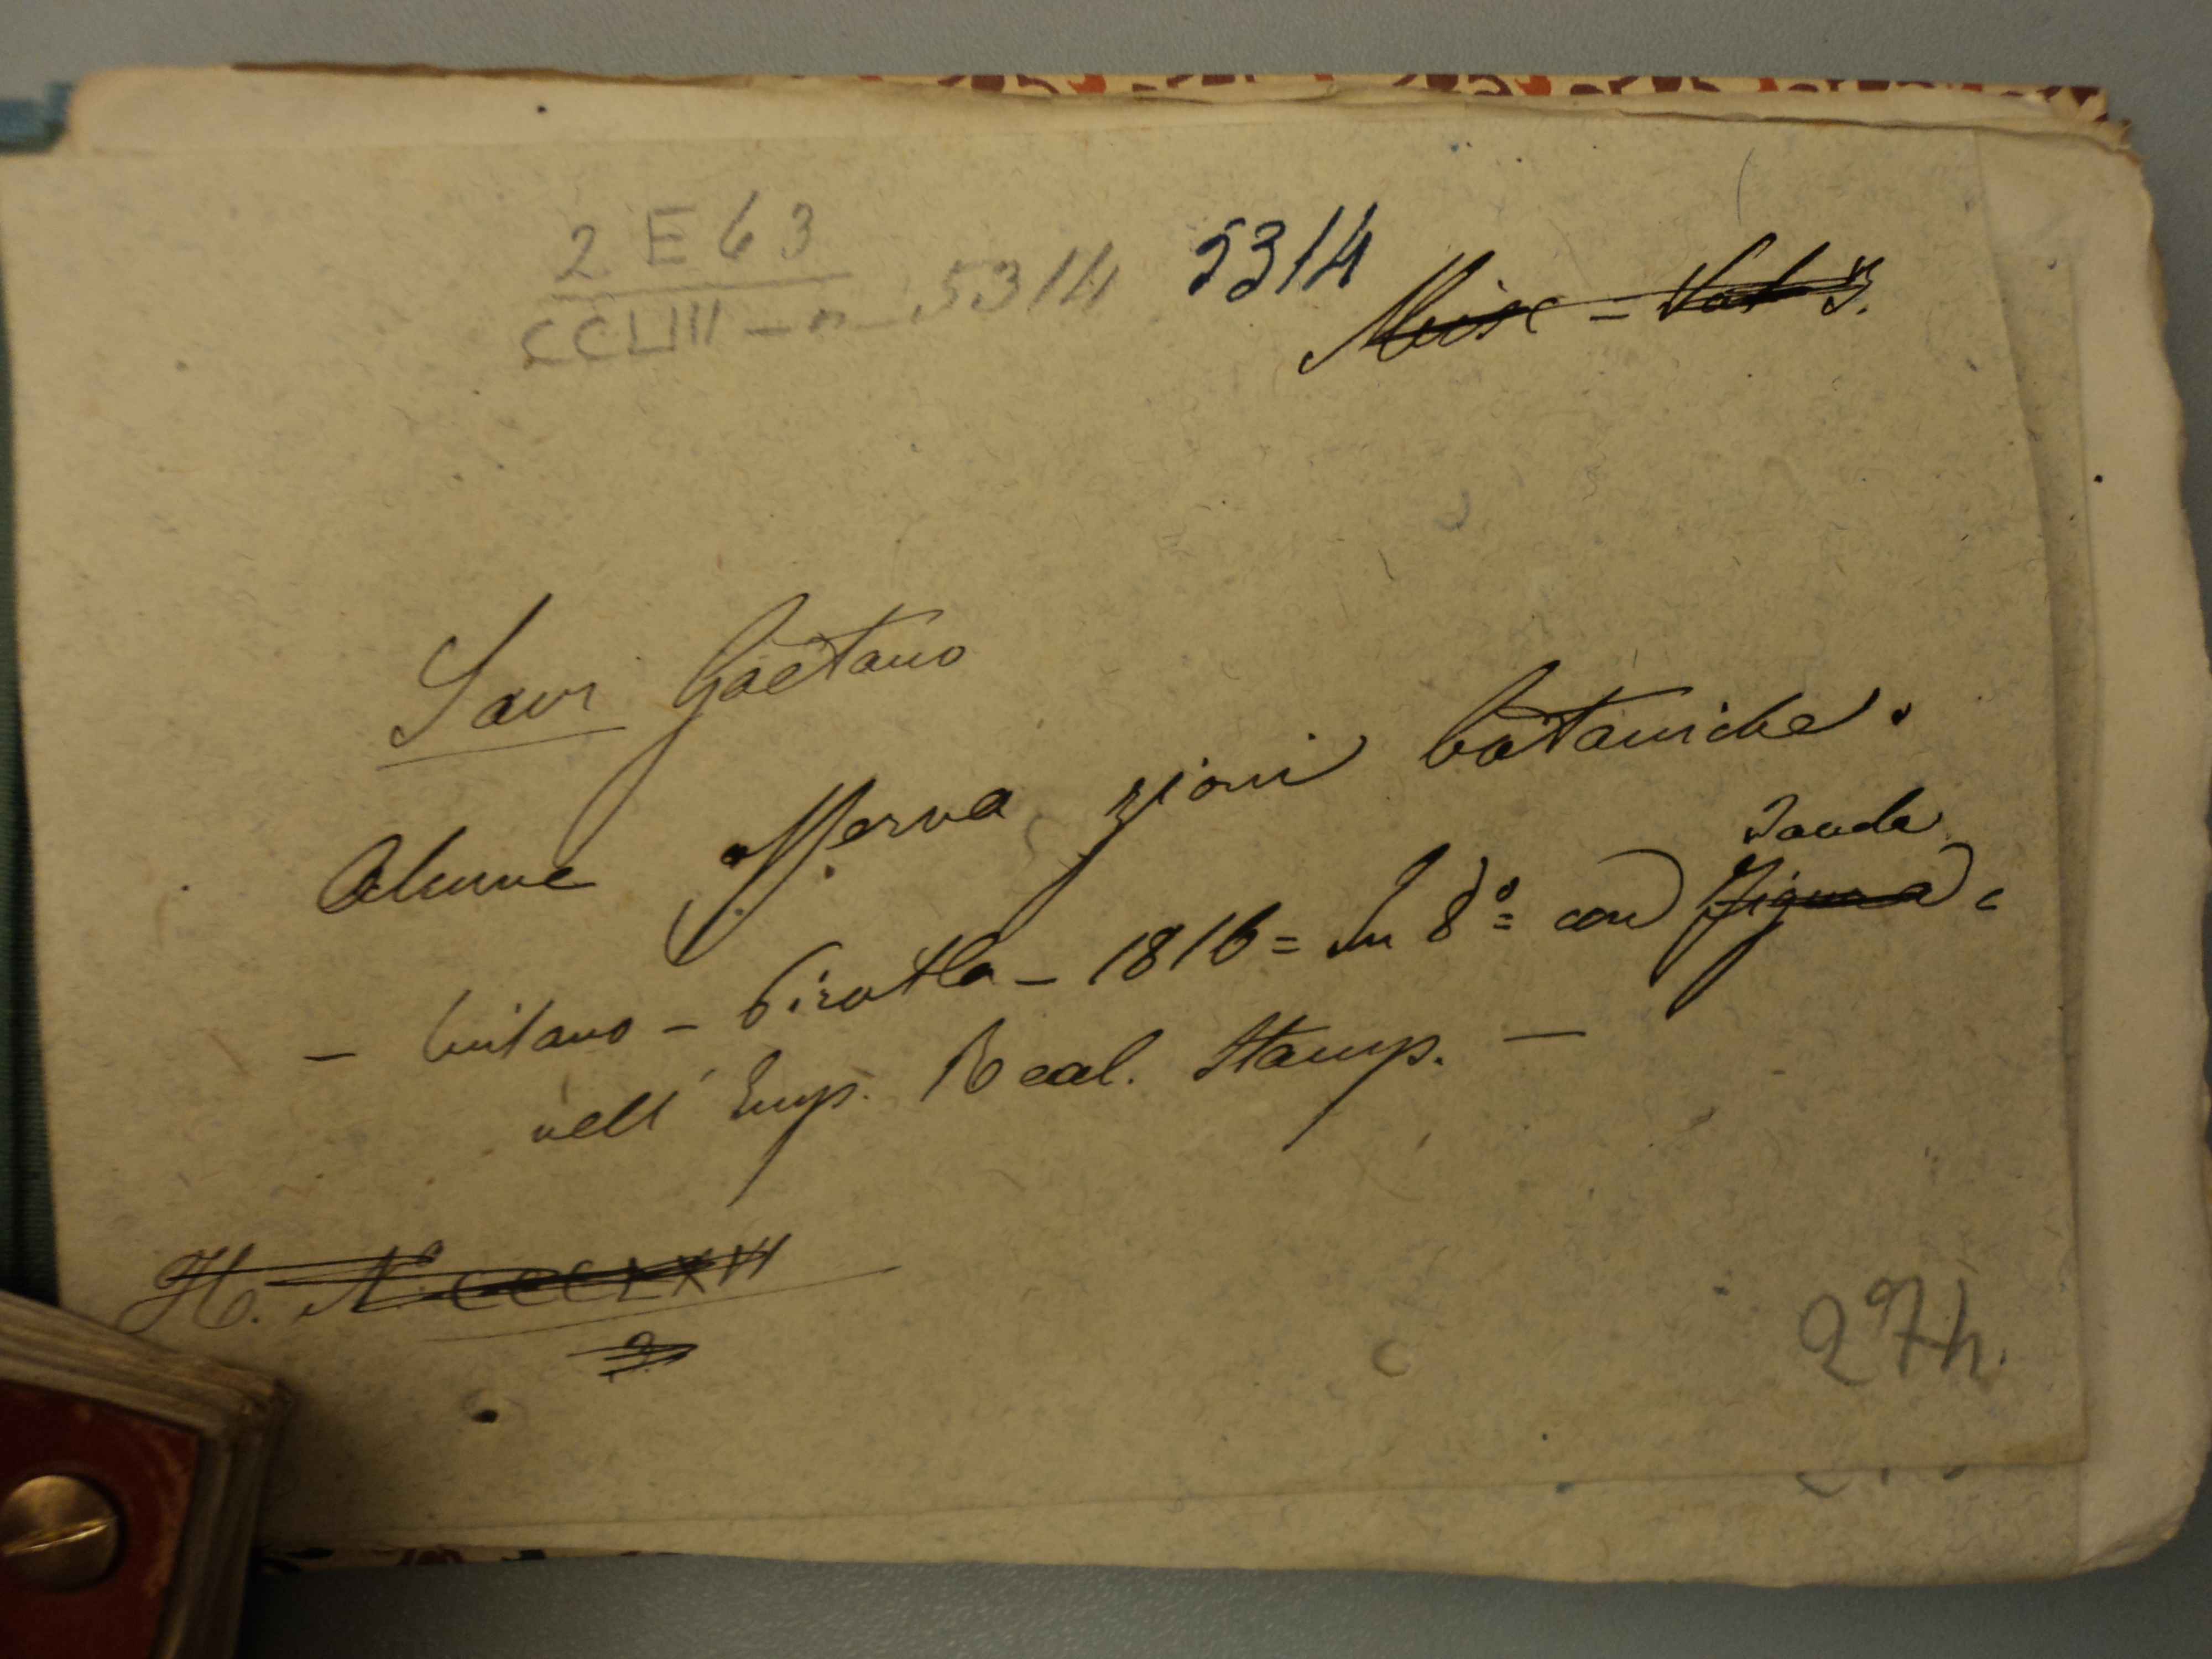 2 E 63
CCLIII - n 5314 5314
Misc - Vol 3.
Savi Gaetano
Alcune Osservazioni botaniche.
Tavola
- Milano - Pirotta - 1816 = In 8º = con Figura =
nell' Imp. Real. Stamp. -
H. N. CCCLXXVI
3